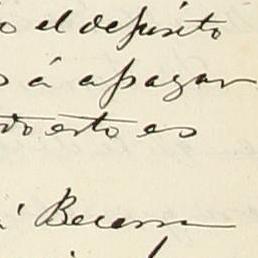 o el depósito
s á apagar
do esto es
Becerra